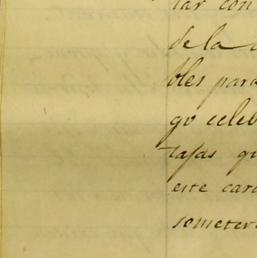 tar con
de la
bles para
go celeb
tajas qu
este cará
someter